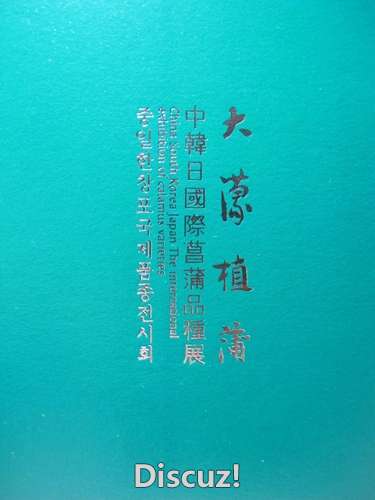 大蒙植蒲
中韓日國際菖蒲品種展
China South Korea Japan The international
exhibition of calamus varieties
중일한창포국제품종전시회
Discuz!